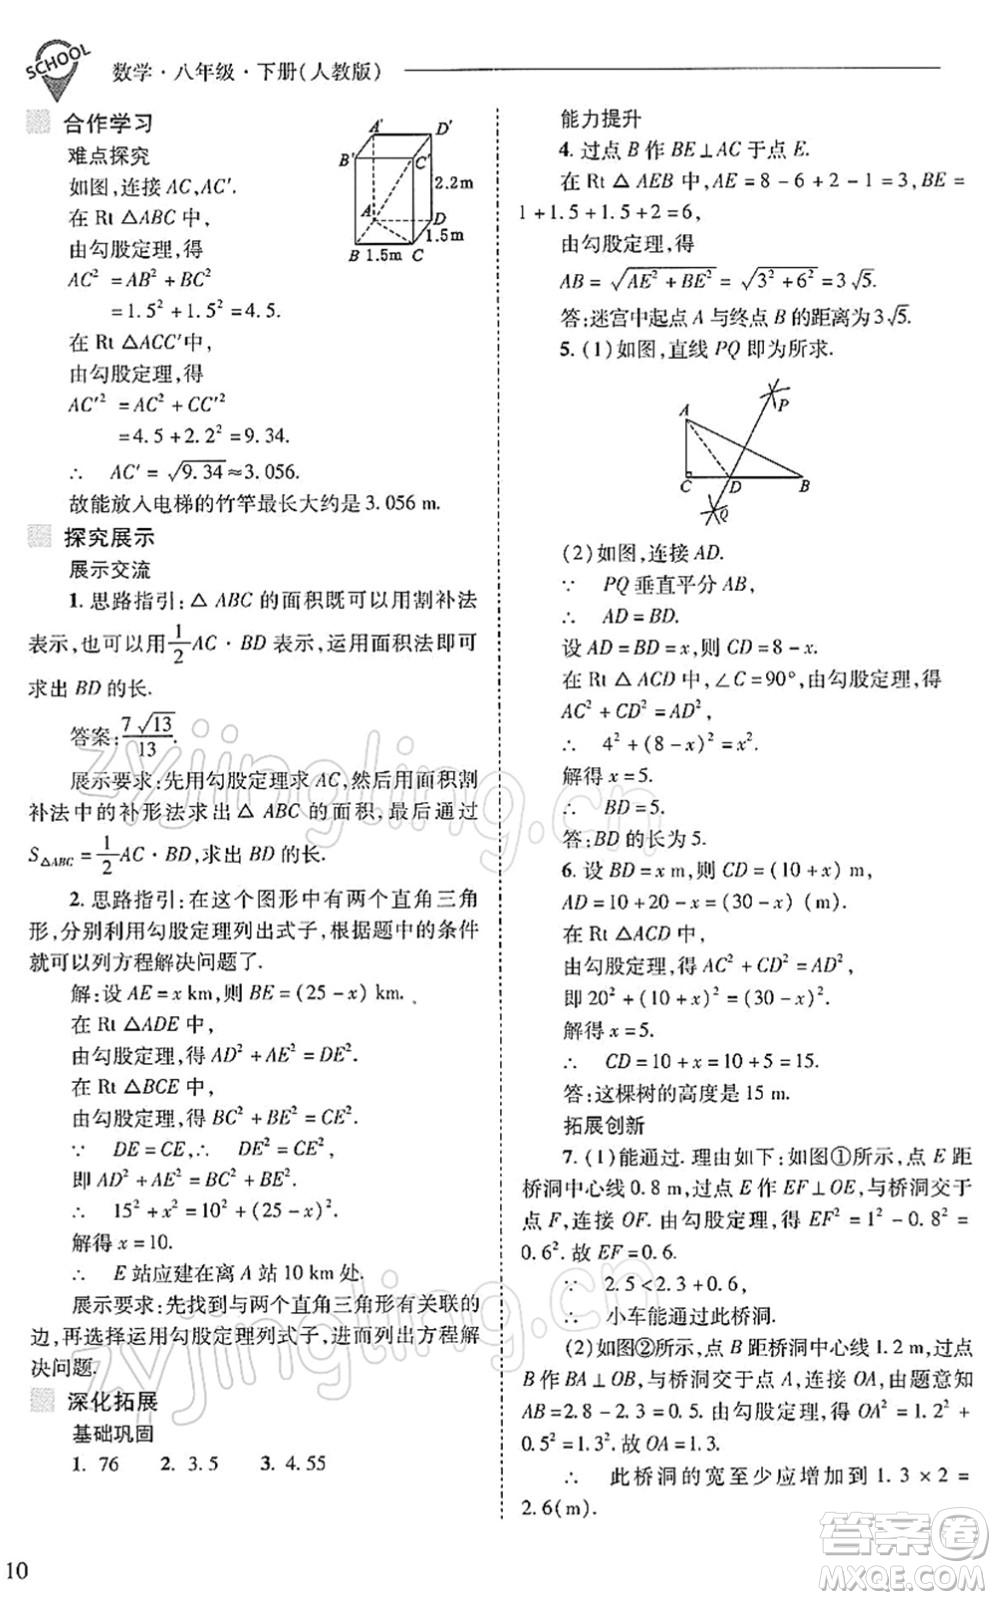 SCHOOL
数学·八年级·下册(人教版)
合作学习
难点探究
如图,连接 AC,AC′.
在 Rt △ABC 中,
由勾股定理,得
AC² = AB² + BC²
= 1.5² + 1.5² = 4.5.
在 Rt △ACC′中,
由勾股定理,得
AC′² = AC² + CC′²
= 4.5 + 2.2² = 9.34.
∴ AC′ = √9.34 ≈ 3.056.
故能放入电梯的竹竿最长大约是 3.056 m.
A′ D′
B′ C′
2.2m
A D
1.5m
B 1.5m C
探究展示
展示交流
1. 思路指引:△ ABC 的面积既可以用割补法
表示,也可以用 1/2 AC · BD 表示,运用面积法即可
求出 BD 的长.
答案: 7√13/13.
展示要求:先用勾股定理求 AC,然后用面积割
补法中的补形法求出 △ ABC 的面积,最后通过
S△ABC = 1/2 AC · BD,求出 BD 的长.
2. 思路指引:在这个图形中有两个直角三角
形,分别利用勾股定理列出式子,根据题中的条件
就可以列方程解决问题了.
解:设 AE = x km,则 BE = (25 - x) km.
在 Rt △ADE 中,
由勾股定理,得 AD² + AE² = DE².
在 Rt △BCE 中,
由勾股定理,得 BC² + BE² = CE².
∵ DE = CE,∴ DE² = CE².
即 AD² + AE² = BC² + BE².
∴ 15² + x² = 10² + (25 - x)².
解得 x = 10.
∴ E 站应建在离 A 站 10 km 处.
展示要求:先找到与两个直角三角形有关联的
边,再选择运用勾股定理列式子,进而列出方程解
决问题.
深化拓展
基础巩固
1. 76 2. 3.5 3. 4.55
能力提升
4. 过点 B 作 BE ⊥ AC 于点 E.
在 Rt △ AEB 中,AE = 8 - 6 + 2 - 1 = 3,BE =
1 + 1.5 + 1.5 + 2 = 6,
由勾股定理,得
AB = √AE² + BE² = √3² + 6² = 3√5.
答:迷宫中起点 A 与终点 B 的距离为 3√5.
5. (1)如图,直线 PQ 即为所求.
A P
C D B
Q
(2)如图,连接 AD.
∵ PQ 垂直平分 AB,
∴ AD = BD.
设 AD = BD = x,则 CD = 8 - x.
在 Rt △ ACD 中,∠C = 90°,由勾股定理,得
AC² + CD² = AD²,
∴ 4² + (8 - x)² = x².
解得 x = 5.
∴ BD = 5.
答:BD 的长为 5.
6. 设 BD = x m,则 CD = (10 + x) m,
AD = 10 + 20 - x = (30 - x) (m).
在 Rt △ACD 中,
由勾股定理,得 AC² + CD² = AD²,
即 20² + (10 + x)² = (30 - x)².
解得 x = 5.
∴ CD = 10 + x = 10 + 5 = 15.
答:这棵树的高度是 15 m.
拓展创新
7. (1)能通过. 理由如下:如图①所示,点 E 距
桥洞中心线 0.8 m,过点 E 作 EF ⊥ OE,与桥洞交于
点 F,连接 OF. 由勾股定理,得 EF² = 1² - 0.8² =
0.6². 故 EF = 0.6.
∵ 2.5 < 2.3 + 0.6,
∴ 小车能通过此桥洞.
(2)如图②所示,点 B 距桥洞中心线 1.2 m,过点
B 作 BA ⊥ OB,与桥洞交于点 A,连接 OA,由题意知
AB = 2.8 - 2.3 = 0.5. 由勾股定理,得 OA² = 1.2² +
0.5² = 1.3². 故 OA = 1.3.
∴ 此桥洞的宽至少应增加到 1.3 × 2 =
2.6(m).
10
zyjingling.cn
zyjingling.cn
答案圈
MXQE.COM